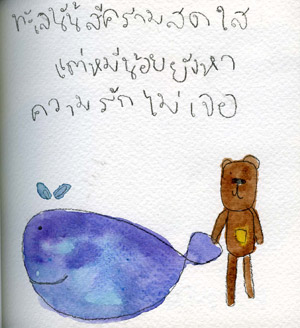 ทะเลนั้นสีครามสดใส
แต่หมีน้อยยังหา
ความรักไม่เจอ